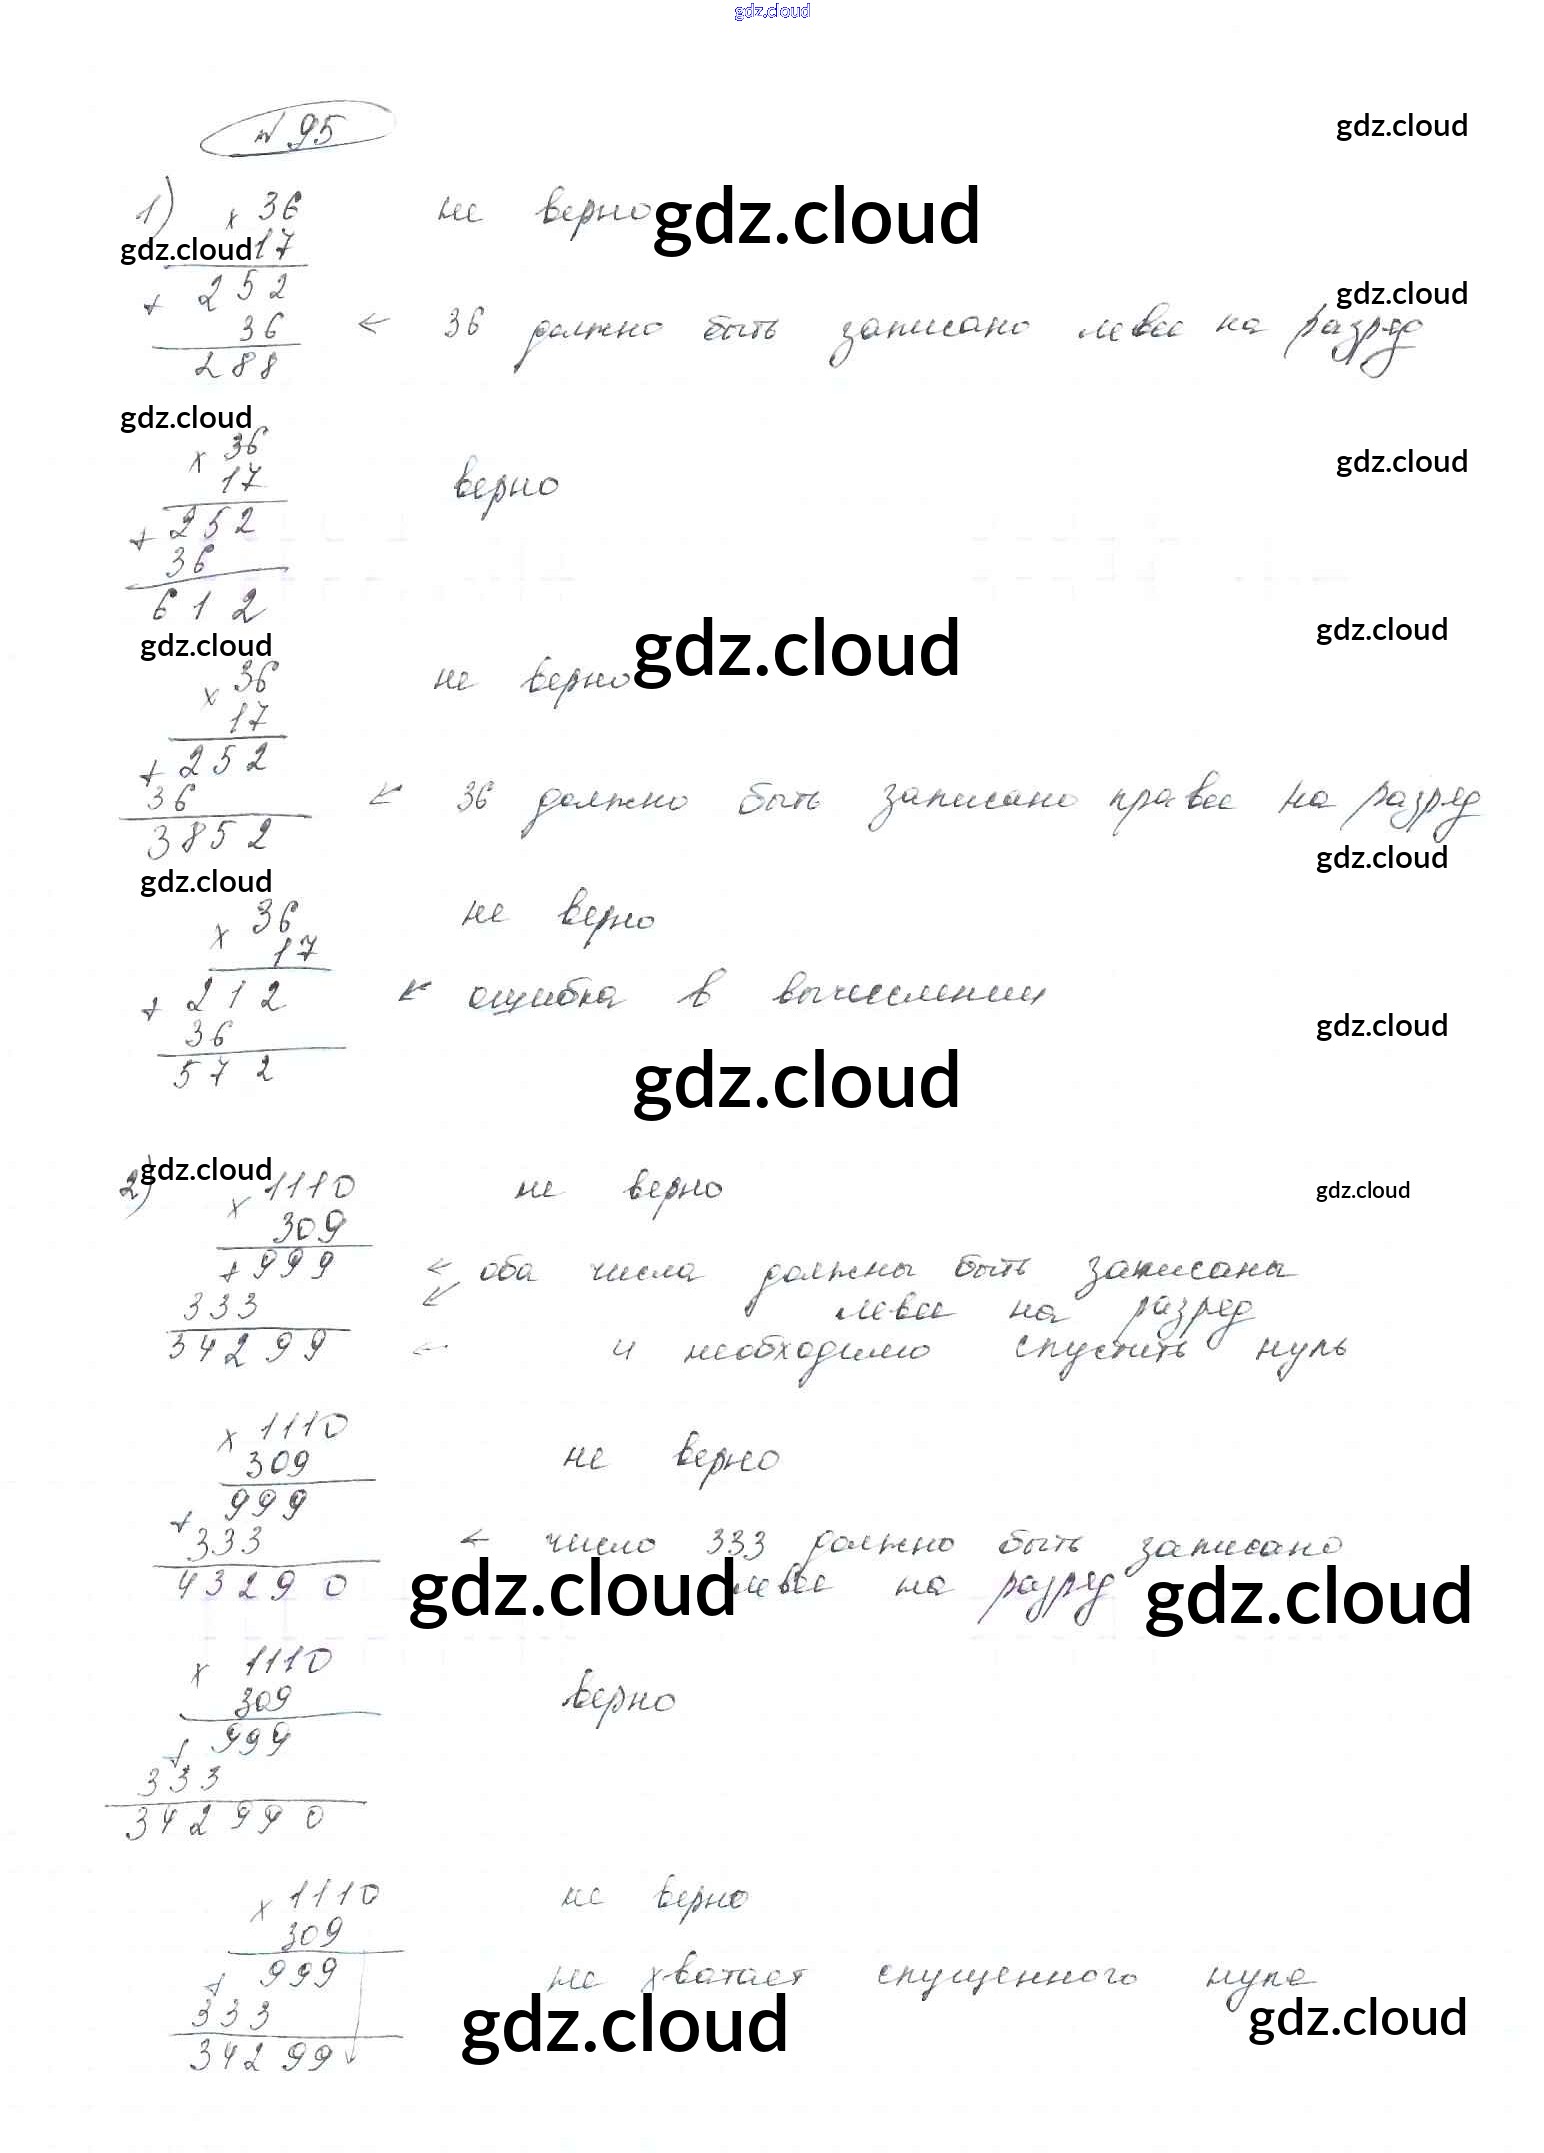 gdz.cloud
№ 95
gdz.cloud
1) × 36 не верно gdz.cloud
gdz.cloud 17
+ 252 gdz.cloud
36 ← 36 должно быть записано левее на разряд
288
gdz.cloud
× 36
17 верно gdz.cloud
+ 252
36
612
gdz.cloud gdz.cloud gdz.cloud
× 36 не верно
17
+ 252
36 ← 36 должно быть записано правее на разряд
3852
gdz.cloud gdz.cloud
× 36 не верно
17
+ 212 ← ошибка в вычислении
36 gdz.cloud
572 gdz.cloud
gdz.cloud
2) × 1110 не верно gdz.cloud
309
+ 999 ← оба числа должны быть записаны
333 ← левее на разряд
34299 ← и необходимо спустить нуль
× 1110
309 не верно
999
+ 333 ← число 333 должно быть записано
43290 gdz.cloud левее на разряд gdz.cloud
× 1110
309 верно
+ 999
333
342990
× 1110 не верно
309
+ 999 не хватает спущенного нуля
333 gdz.cloud gdz.cloud
34299